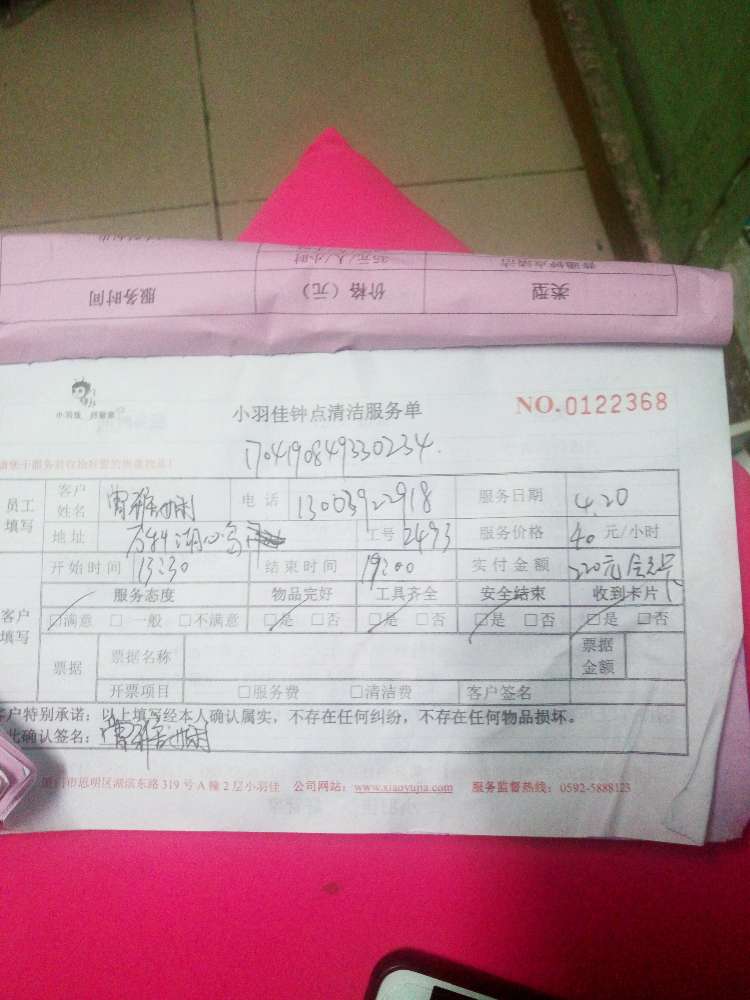 普通钟点清洁 35元/人/小时
类型 价格（元） 服务时间
小羽佳
小羽佳钟点清洁服务单 NO.0122368
1704190849330234.
员工填写 客户姓名 电话 13003922918 服务日期 4.20
地址 万科湖心岛 工号 2493 服务价格 40 元/小时
开始时间 13:30 结束时间 19:00 实付金额 220元会员卡
客户填写 服务态度 物品完好 工具齐全 安全结束 收到卡片
□满意 □一般 □不满意 □是 □否 □是 □否 □是 □否 □是 □否
票据 票据名称 票据金额
开票项目 □服务费 □清洁费 客户签名
客户特别承诺：以上填写经本人确认属实，不存在任何纠纷，不存在任何物品损坏。
此确认签名：
厦门市思明区湖滨东路 319 号 A 幢 2 层小羽佳 公司网站：www.xiaoyujia.com 服务监督热线：0592-5888123